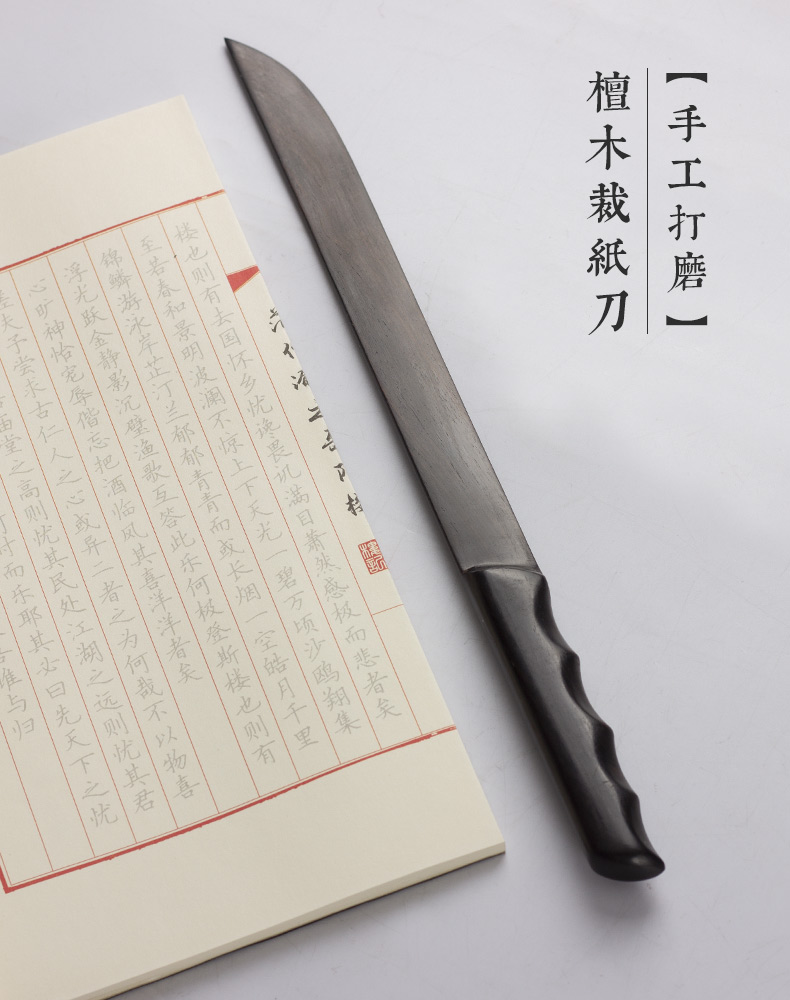 【手工打磨】
檀木裁紙刀
楼也则有去国怀乡忧谗畏讥满目萧然感极而悲者矣
至若春和景明波澜不惊上下天光一碧万顷沙鸥翔集
锦鳞游泳岸芷汀兰郁郁青青而或长烟一空皓月千里
浮光跃金静影沉璧渔歌互答此乐何极登斯楼也则有
心旷神怡宠辱偕忘把酒临风其喜洋洋者矣
夫予尝求古仁人之心或异二者之为何哉不以物喜
庙堂之高则忧其民处江湖之远则忧其君
时而乐耶其必曰先天下之忧
谁与归